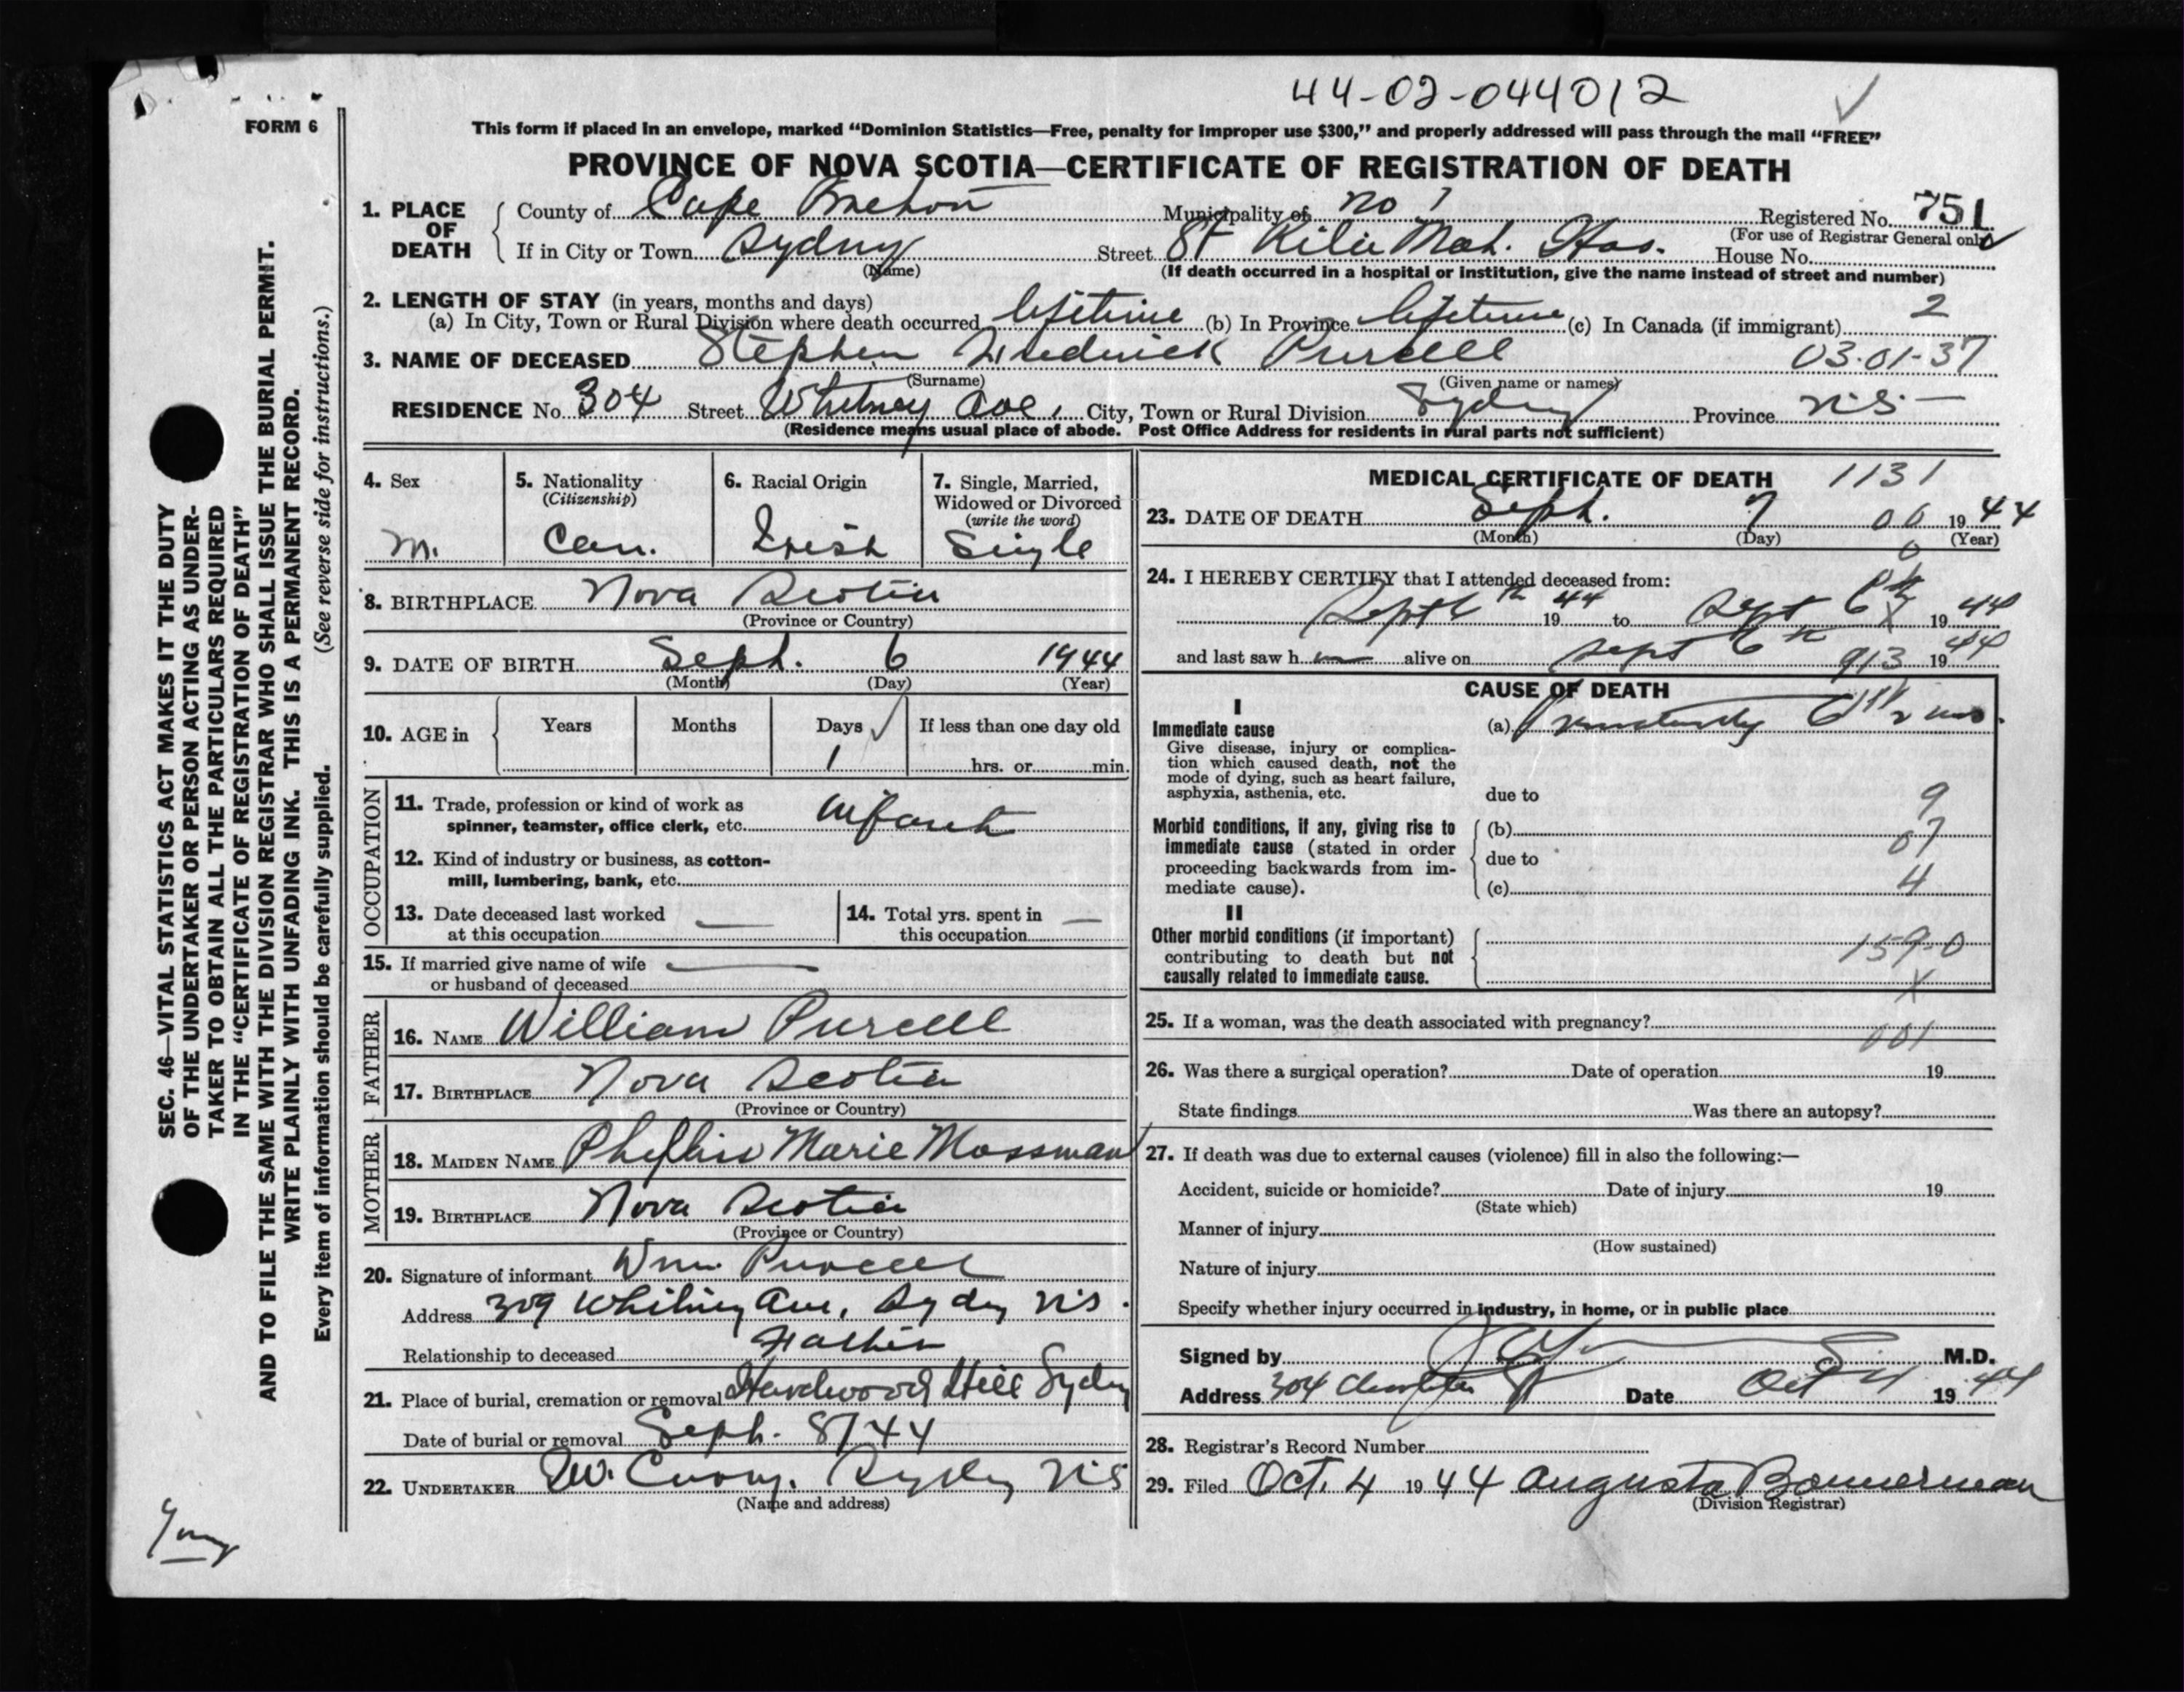 44-02-044012
FORM 6
This form if placed in an envelope, marked “Dominion Statistics—Free, penalty for improper use $300,” and properly addressed will pass through the mail “FREE”
PROVINCE OF NOVA SCOTIA—CERTIFICATE OF REGISTRATION OF DEATH
1. PLACE OF DEATH
County of Cape Breton Municipality of No 1 Registered No. 751
(For use of Registrar General only)
If in City or Town Sydney Street St Hos. House No.
(Name) (If death occurred in a hospital or institution, give the name instead of street and number)
2. LENGTH OF STAY (in years, months and days) 2
(a) In City, Town or Rural Division where death occurred lifetime (b) In Province lifetime (c) In Canada (if immigrant)
3. NAME OF DECEASED Stephen Frederick Purcell 03-01-37
(Surname) (Given name or names)
RESIDENCE No. 304 Street Whitney Ave, City, Town or Rural Division Sydney Province N.S.
(Residence means usual place of abode. Post Office Address for residents in rural parts not sufficient)
4. Sex
M.
5. Nationality
(Citizenship)
Can.
6. Racial Origin
Irish
7. Single, Married,
Widowed or Divorced
(write the word)
Single
8. BIRTHPLACE Nova Scotia
(Province or Country)
9. DATE OF BIRTH Sept. 6 1944
(Month) (Day) (Year)
10. AGE in Years Months Days If less than one day old
1 hrs. or min.
OCCUPATION
11. Trade, profession or kind of work as
spinner, teamster, office clerk, etc. infant
12. Kind of industry or business, as cotton-
mill, lumbering, bank, etc.
13. Date deceased last worked
at this occupation —
14. Total yrs. spent in
this occupation —
15. If married give name of wife
or husband of deceased —
FATHER
16. NAME William Purcell
17. BIRTHPLACE Nova Scotia
(Province or Country)
MOTHER
18. MAIDEN NAME Phyllis Marie Mossman
19. BIRTHPLACE Nova Scotia
(Province or Country)
20. Signature of informant Wm. Purcell
Address 309 Whitney Ave, Sydney N.S.
Relationship to deceased Father
21. Place of burial, cremation or removal Hardwood Hill Sydney
Date of burial or removal Sept. 8/44
22. UNDERTAKER W. Curry. Sydney N.S
(Name and address)
MEDICAL CERTIFICATE OF DEATH 1131
23. DATE OF DEATH Sept. 7 00 1944
(Month) (Day) (Year)
0
24. I HEREBY CERTIFY that I attended deceased from:
Sept 6th 1944 to Sept 6th 1944
and last saw h im alive on Sept 6th 913 1944
CAUSE OF DEATH
I
Immediate cause
Give disease, injury or complica-
tion which caused death, not the
mode of dying, such as heart failure,
asphyxia, asthenia, etc.
(a) Prematurity
due to 9
Morbid conditions, if any, giving rise to
immediate cause (stated in order
proceeding backwards from im-
mediate cause).
(b) 07
due to
(c) 4
II
Other morbid conditions (if important)
contributing to death but not
causally related to immediate cause.
159-0
X
25. If a woman, was the death associated with pregnancy?
001
26. Was there a surgical operation? Date of operation 19
State findings Was there an autopsy?
27. If death was due to external causes (violence) fill in also the following:—
Accident, suicide or homicide? Date of injury 19
(State which)
Manner of injury
(How sustained)
Nature of injury
Specify whether injury occurred in industry, in home, or in public place
Signed by M.D.
Address 304 Date Oct 4 1944
28. Registrar's Record Number
29. Filed Oct. 4 1944 Augusta Bannerman
(Division Registrar)
SEC. 46—VITAL STATISTICS ACT MAKES IT THE DUTY
OF THE UNDERTAKER OR PERSON ACTING AS UNDER-
TAKER TO OBTAIN ALL THE PARTICULARS REQUIRED
IN THE “CERTIFICATE OF REGISTRATION OF DEATH”
AND TO FILE THE SAME WITH THE DIVISION REGISTRAR WHO SHALL ISSUE THE BURIAL PERMIT.
WRITE PLAINLY WITH UNFADING INK. THIS IS A PERMANENT RECORD.
Every item of information should be carefully supplied. (See reverse side for instructions.)